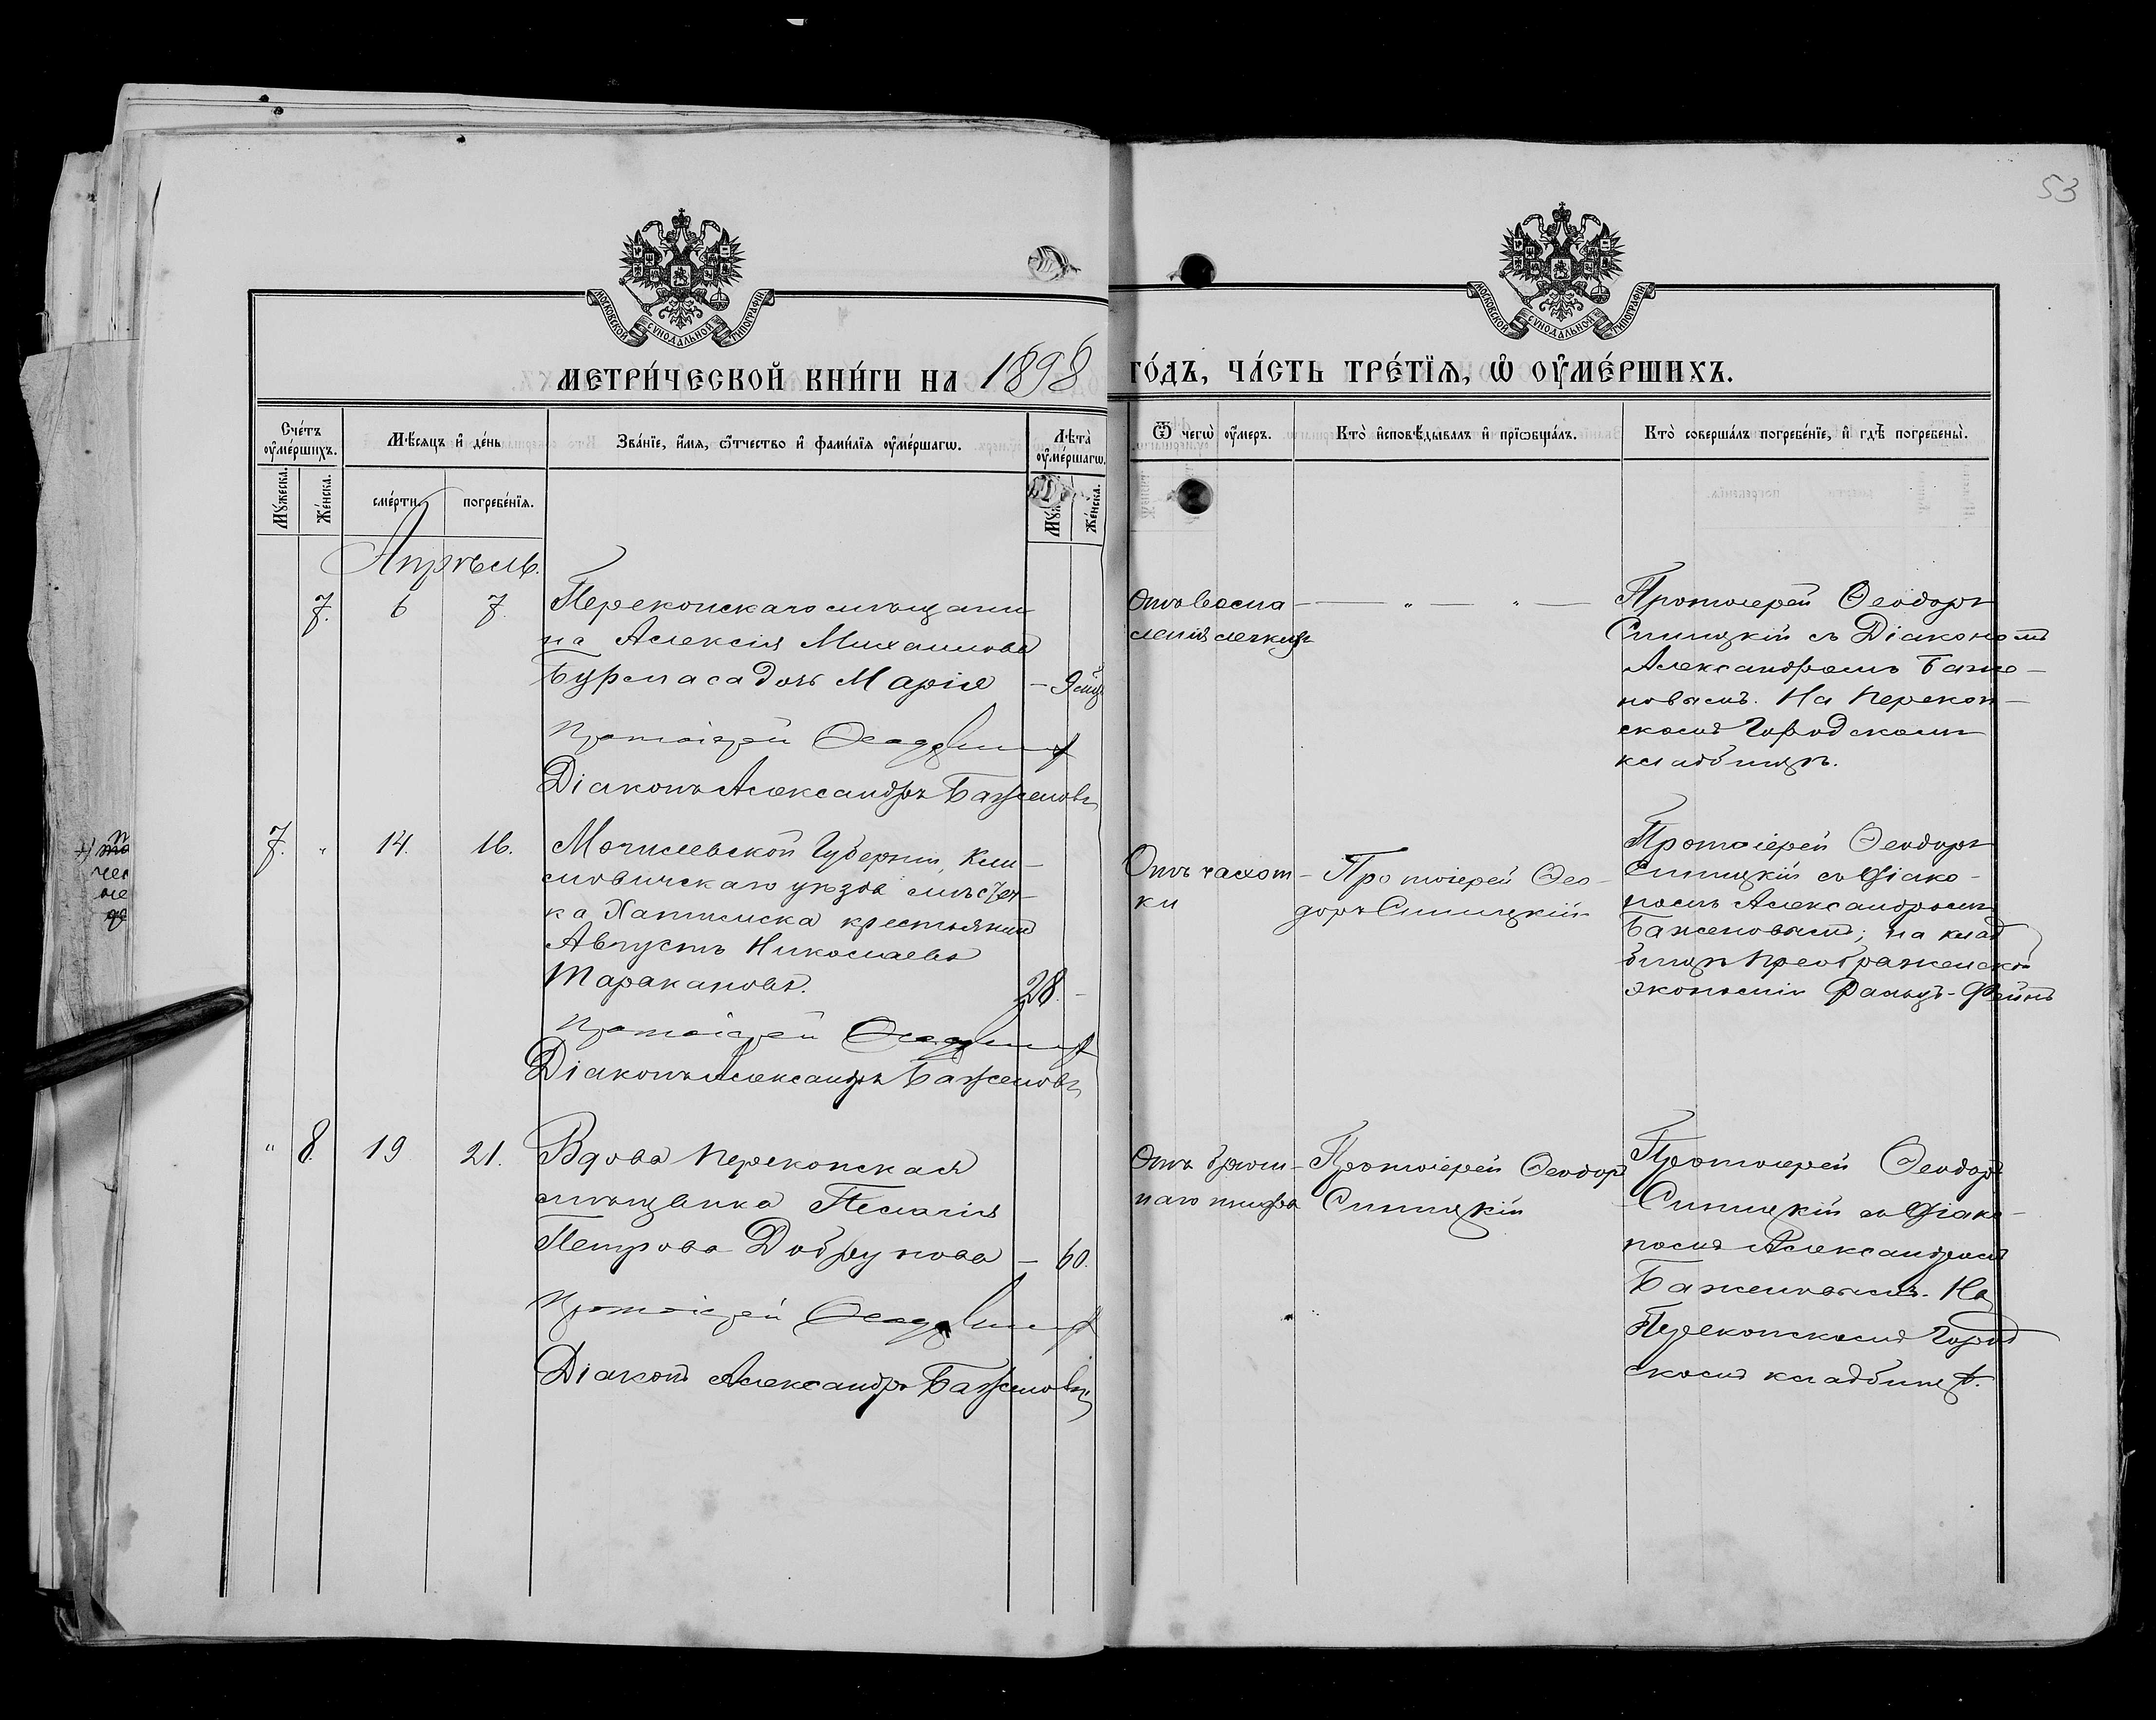 53
МОСКОВСКОЙ СѴНОДАЛЬНОЙ ТИПОГРАФІИ
МОСКОВСКОЙ СѴНОДАЛЬНОЙ ТИПОГРАФІИ
МЕТРИ́ЧЕСКОЙ КНИ́ГИ НА 1898 ГО́ДЪ, ЧА́СТЬ ТРЕ́ТЇѦ, Ѡ҆ ОУ҆МЕ́РШИХЪ.
Сче́тъ оу҆ме́ршихъ.
Мꙋ́жеска.
Же́нска.
Мѣ́сѧцъ и҆ де́нь
сме́рти.
погребе́нїѧ.
Зва́нїе, и҆́мѧ, ѻ҆́тчество и҆ фами́лїѧ оу҆ме́ршагѡ.
Лѣ́та̀ оу҆ме́ршагѡ.
Же́нска.
Ѿ чегѡ̀ оу҆́меръ.
Кто̀ и҆сповѣ́дывалъ и҆ прїѡбща́лъ.
Кто̀ соверша́лъ погребе́нїе, и҆ гдѣ̀ погребены̀.
Апрѣль.
7. 6 7.
Перекопскаго мѣщани
на Алексія Михаилова
Бурмаса дочь Марія — 9 мѣс
Протоіерей
Діаконъ Александръ Баженовъ
Отъ воспа-
ленія легкихъ
— „ — „ —
Протоіерей Ѳеодоръ
Синицкій съ Діакономъ
Александромъ Баже-
новымъ. На Перекоп-
скомъ Городскомъ
кладбищѣ.
7. „ 14. 16.
Могилевской Губерніи, Кли-
мовичскаго уѣзда мѣстеч-
ка Хатимска крестьянинъ
Августъ Николаевъ
Таракановъ. 28. -
Протоіерей
Діаконъ Александръ Баженовъ
Отъ чахот-
ки
Протоіерей Ѳео-
доръ Синицкій
Протоіерей Ѳеодоръ
Синицкій съ Діако-
номъ Александромъ
Баженовымъ; на клад
бищѣ Преображенской
экономіи Фальцъ-Фейнъ
" 8. 19 21.
Вдова Перекопская
мѣщанка Пелагія
Петрова Добрунова — 60.
Протоіерей
Діаконъ Александръ Баженовъ
Отъ брюш-
наго тифа
Протоіерей Ѳеодоръ
Синицкій
Протоіерей Ѳеодоръ
Синицкій съ Діако-
номъ Александромъ
Баженовымъ. На
Перекопскомъ Город
скомъ кладбищѣ.